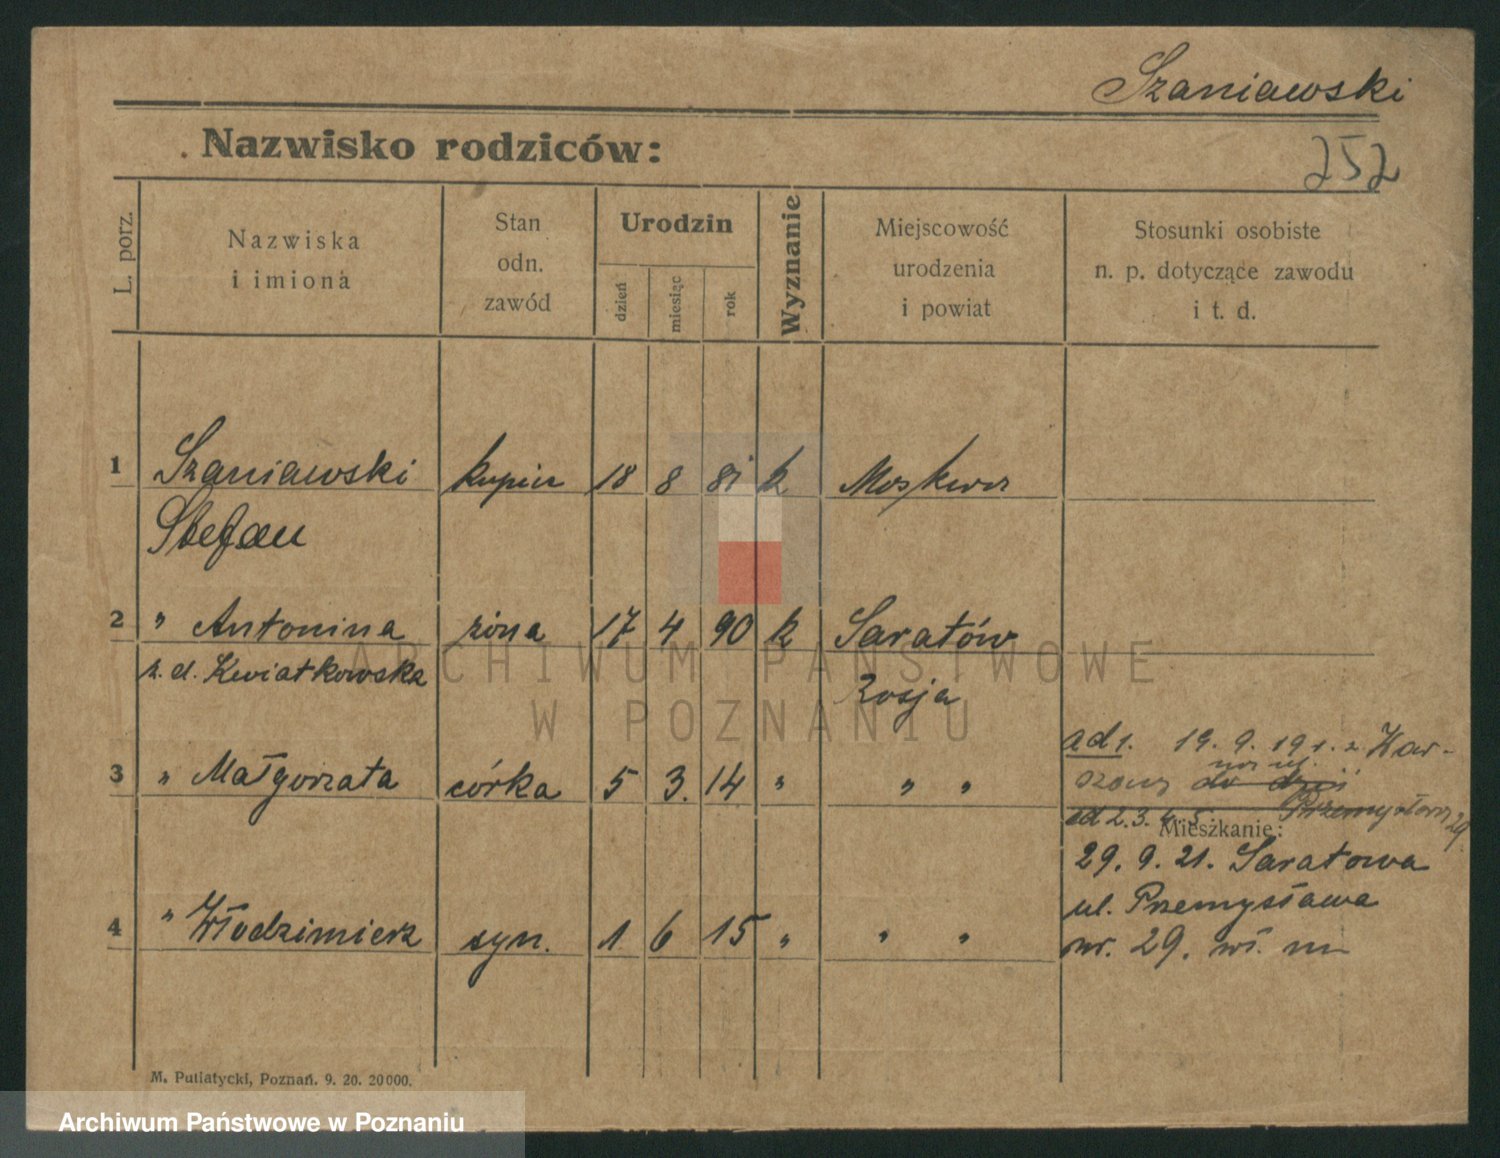 Szaniawski
252
Nazwisko rodziców:
L. porz.
Nazwiska
i imiona
Stan
odn.
zawód
Urodzin
dzień
miesiąc
rok
Wyznanie
Miejscowość
urodzenia
i powiat
Stosunki osobiste
n. p. dotyczące zawodu
i t. d.
1 Szaniawski kupiec 18 8 81 k Moskwa
Stefan
2 " Antonina żona 17 4 90 k Saratów
z. d. Kwiatkowska Rosja
3 " Małgorzata córka 5 3. 14 " " "
ad 1. 19. 9. 191. z War-
szawy do dziś
ad 2. 3. 4. 5. Przemysłowa 29
Mieszkanie:
29. 9. 21. Saratowa
ul. Przemysława
nr. 29. wł.
4 " Włodzimierz syn. 1 6 15 " " "
M. Putiatycki, Poznań. 9. 20. 20000.
ARCHIWUM PAŃSTWOWE
W POZNANIU
Archiwum Państwowe w Poznaniu